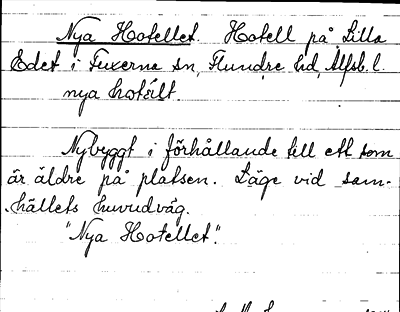 Nya Hotellet. Hotell på Lilla
Edet i Fuxerna sn, Flundre hd, Älfsb. l.
nya hotält.
Nybyggt i förhållande till ett som
är äldre på platsen. Läge vid sam-
hällets huvudväg.
"Nya Hotellet".